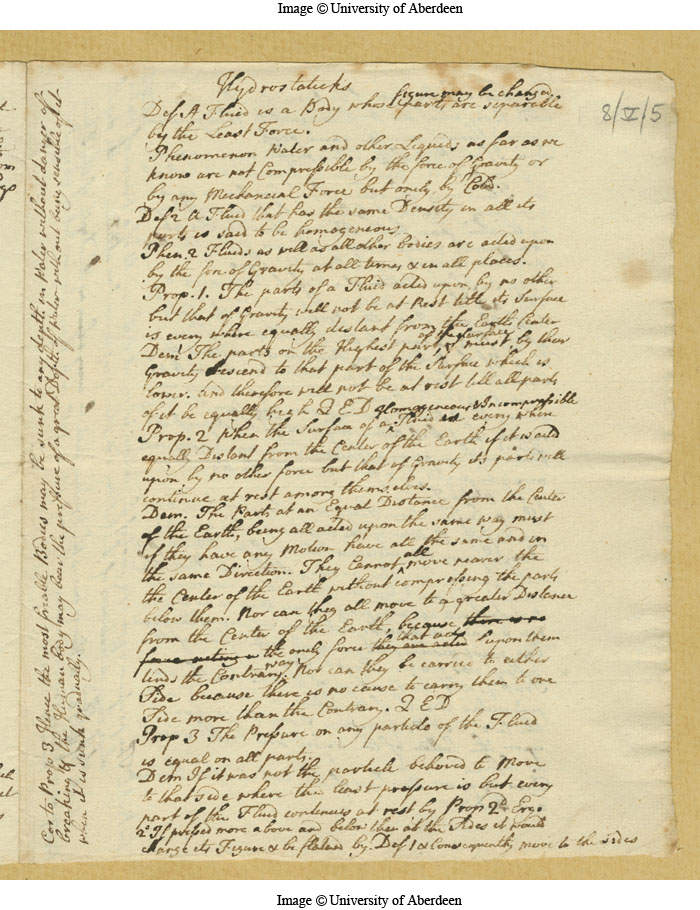 Image © University of Aberdeen
8/V/5
Hydrostaticks
figure may be changed
Def. A Fluid is a Body whose parts are separable
by the Least Force.
Phenomenon Water and other Liqueds as far as we
know are not Compressible by the force of Gravity or
by any Mechancial Force but onely by Cold.
Def 2 A Fluid that has the same Density in all its
parts is said to be homogeneous
Phen. 2 Fluids as well as all other bodies are acted upon
by the force of Gravity at all times & in all places.
Prop. 1. The parts of a Fluid acted upon by no other
but that of Gravity will not be at Rest till its Surface
is every where equally distant from the Earths Center
of the surface
Dem The parts on the Highest part, & must by their
Gravity descend to that part of the Surface which is
lower. and therefore will not be at rest till all parts
of it be equally high Q E D
homogeneous & Incompressible
Prop. 2 When the Surface of a Fluid is every where
equally Distant from the Center of the Earth if it is acted
upon by no other force but that of Gravity its parts will
continue at rest among themselves.
Dem. The Parts at an Equal Distance from the Center
of the Earth, being all acted upon the same way must
if they have any Motion have all the same and in
the same Direction. They Cannot all move nearer the
the Center of the Earth without compressing the parts
below them. Nor can they all move to a greater Distance
from the Center of the Earth, because there is no
force acting the onely force they are acted that acts upon them
tends the Contrary way. Nor can they be carried to either
Side because there is no cause to carry them to one
Side more than the Contrary. Q E D
Prop 3 The Pressure on any particle of the Fluid
is equal on all parts.
Dem If it was not the particle behoved to Move
to that side where the least pressure is but every
part of the Fluid continues at rest by Prop 2d Erg.
2o If pressed more above and below then at the Sides it would
change its Figure & be flatend by Def 1 & Consequently move to the sides
Cor to Prop 3 Hence the most fragile Bodies may be sunk to any depth in Water without danger of
breaking & the Human body may bear the pressure of a great Depth of Water without being sensible of it
when it is sunk gradually.
Image © University of Aberdeen